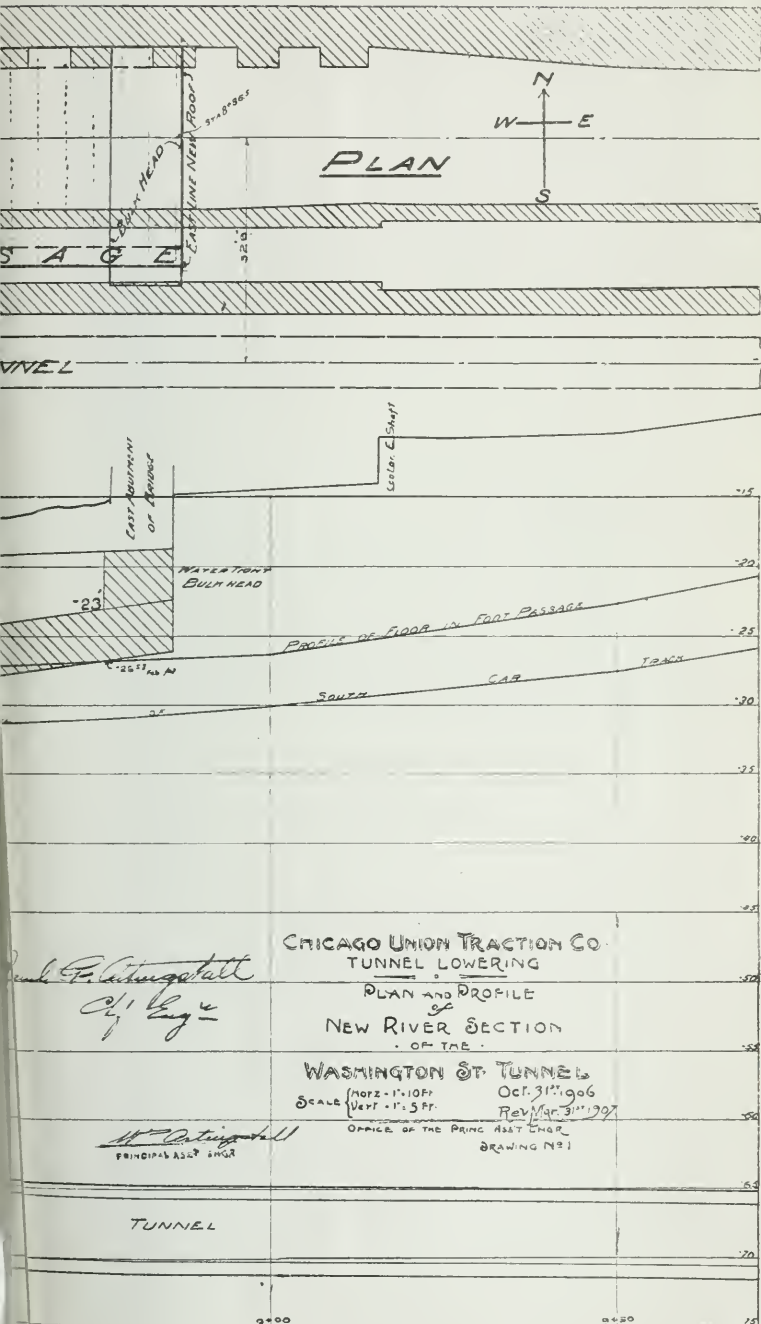 N
W E
S
PLAN
BULK HEAD
EAST LINE NEW ROOF
S A G E
NNEL
EAST ABUTMENT
OF BRIDGE
E. Shaft
-15
WATER TIGHT
BULKHEAD
-20
-23
PROFILE OF FLOOR IN FOOT PASSAGE
-25
OF SOUTH CAR TRACK
-30
-35
-40
-45
CHICAGO UNION TRACTION CO.
TUNNEL LOWERING
-50
PLAN AND PROFILE
of
NEW RIVER SECTION
· OF THE ·
-55
WASHINGTON ST. TUNNEL
SCALE { HORZ - 1" = 10 FT
VERT - 1" = 5 FT.
Oct. 31st 1906
Rev. Mar. 31st 1907
-60
OFFICE OF THE PRINC. ASS'T ENGR
DRAWING No 1
G. Artingstall
Chf Engr
Wm Artingstall
PRINCIPAL ASS'T ENGR
-65
TUNNEL
-70